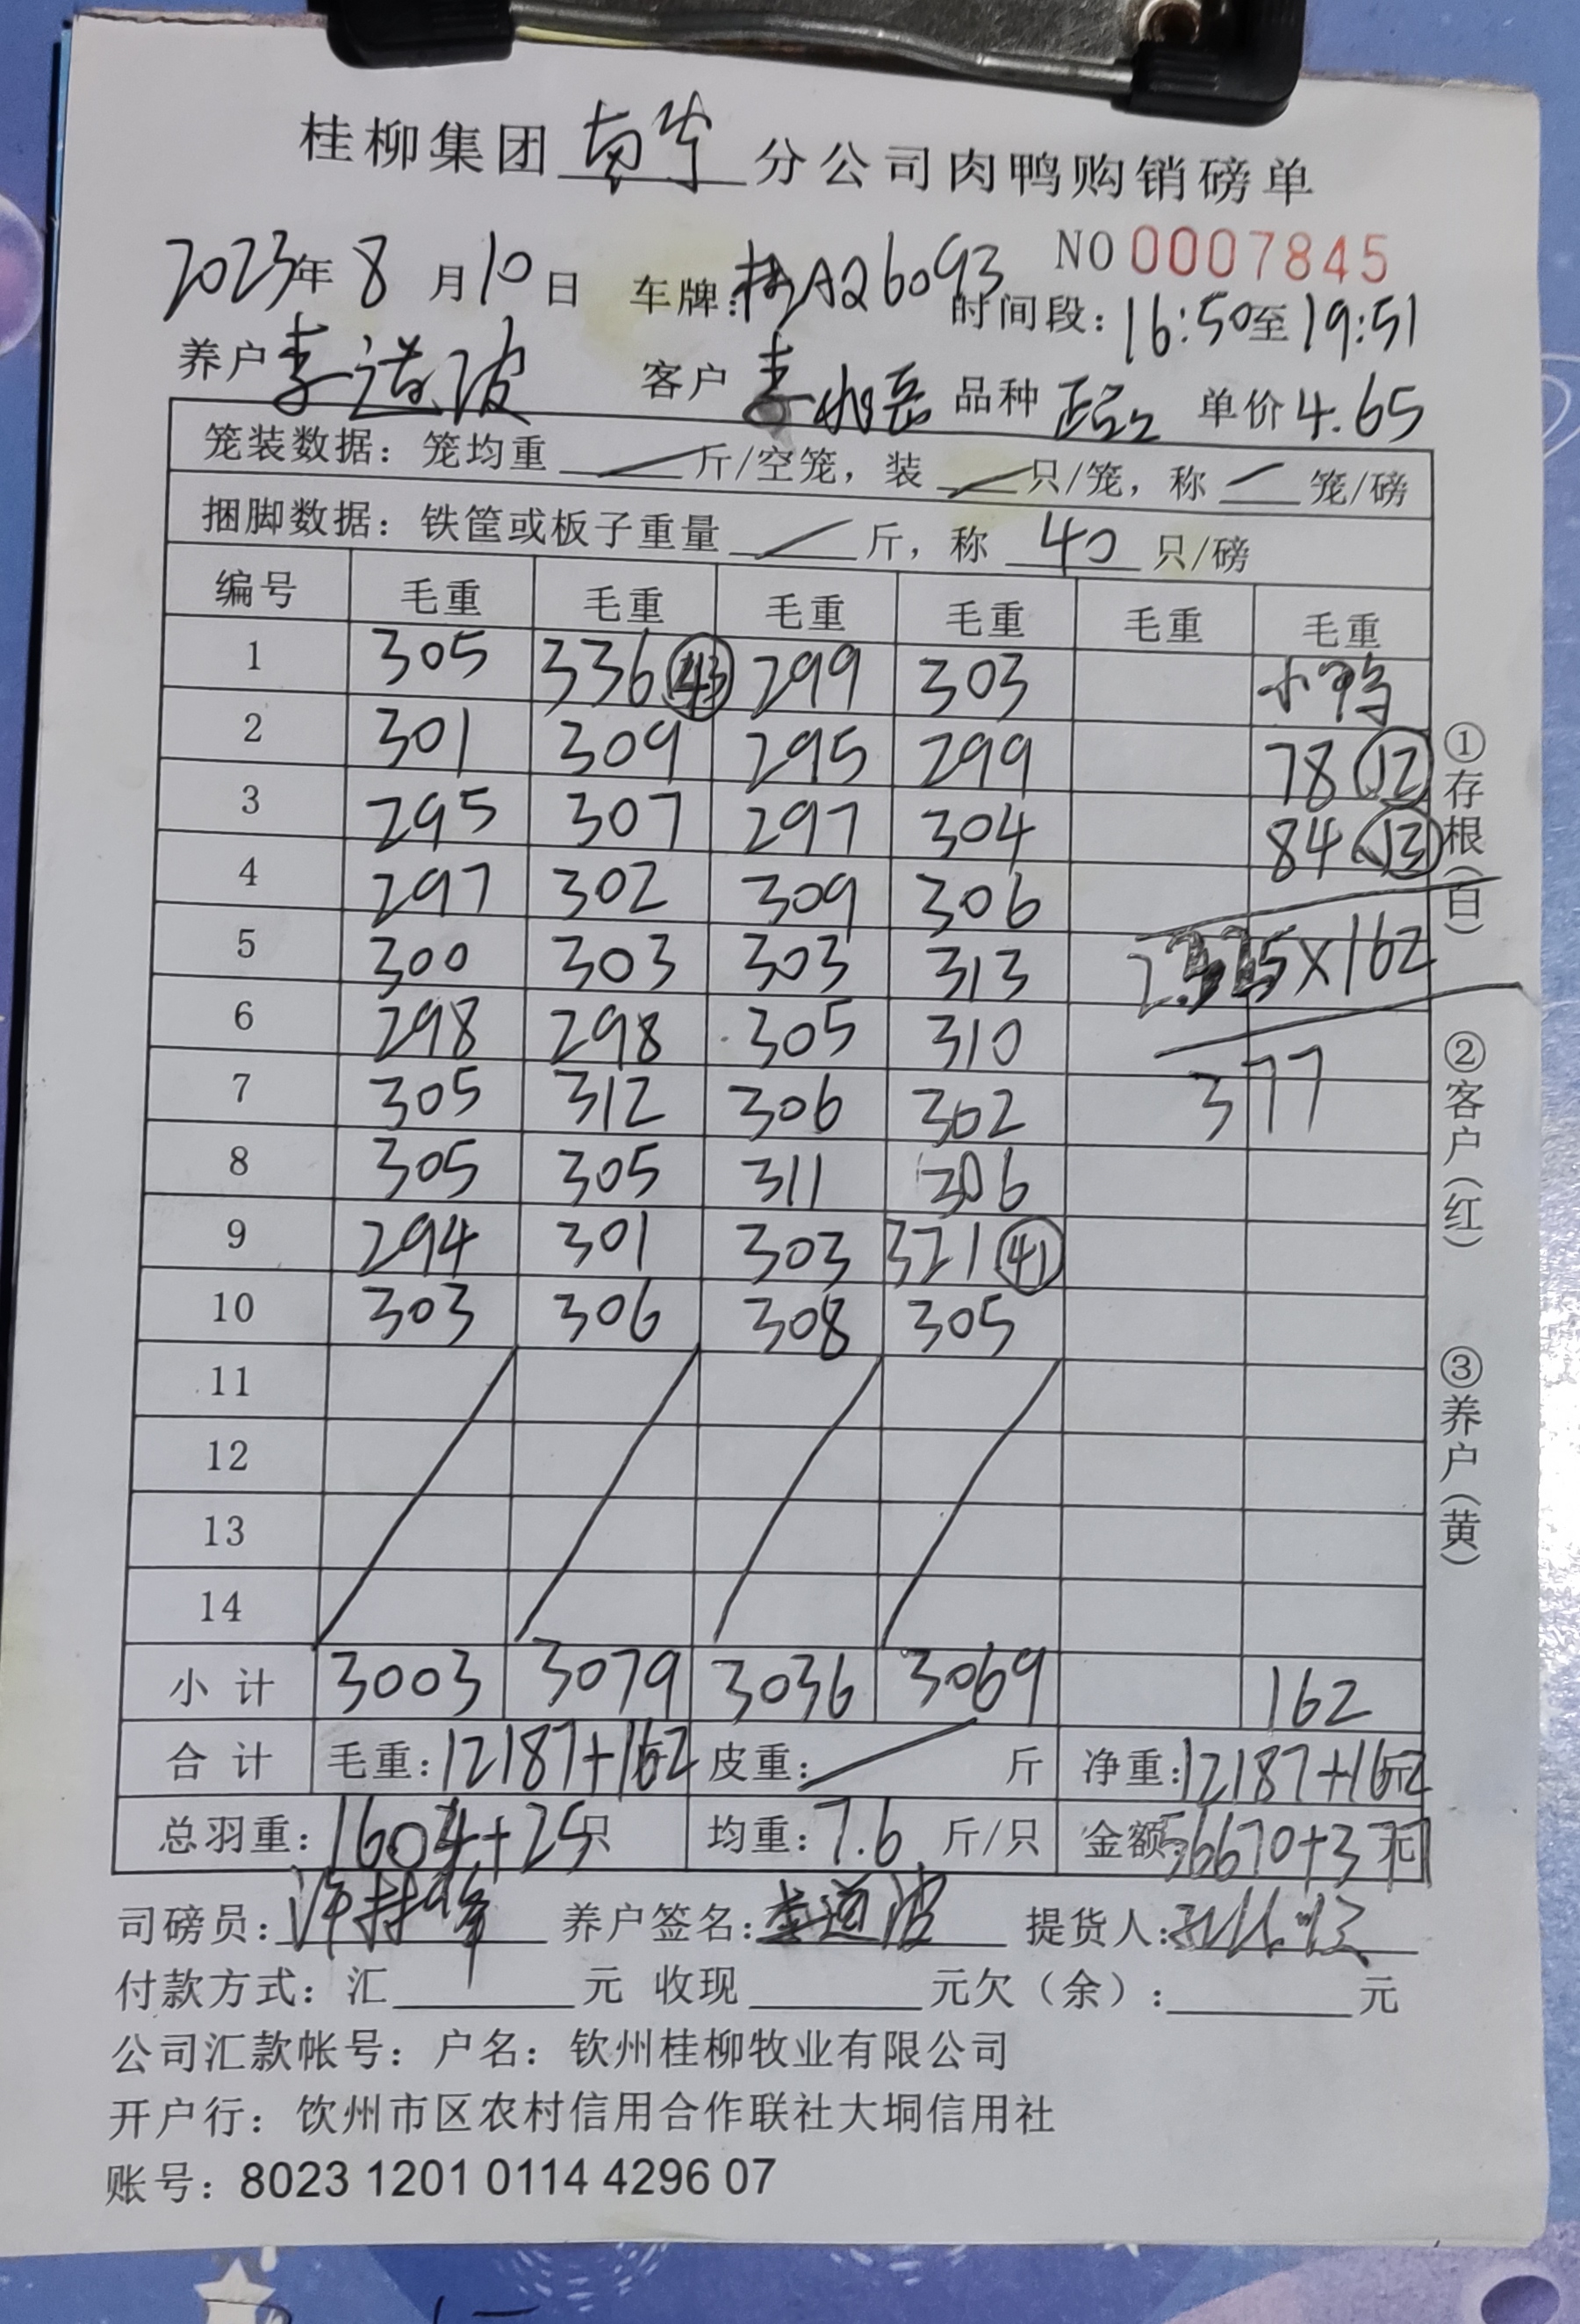 桂柳集团 南华 分公司肉鸭购销磅单
NO 0007845
2023年 8 月 10 日 车牌: 桂A26093 时间段: 16:50至19:51
养户 李道波 客户 李 品种 单价 4.65
笼装数据: 笼均重 / 斤/空笼, 装 / 只/笼, 称 / 笼/磅
捆脚数据: 铁筐或板子重量 / 斤, 称 40 只/磅
编号 毛重 毛重 毛重 毛重 毛重 毛重
1 305 336 (43) 299 303 小鸭
2 301 309 295 299 78 (12)
3 295 307 297 304 84 (13)
4 297 302 309 306
5 300 303 303 313 2.325×162
6 298 298 305 310
7 305 312 306 302 377
8 305 305 311 306
9 294 301 303 321 (41)
10 303 306 308 305
11
12
13
14
小 计 3003 3079 3036 3069 162
合 计 毛重: 12187+162 皮重: / 斤 净重: 12187+162
总羽重: 1604+25只 均重: 7.6 斤/只 金额: 56670+377元
司磅员: 养户签名: 李道波 提货人:
付款方式: 汇 元 收现 元欠(余): 元
公司汇款帐号: 户名: 钦州桂柳牧业有限公司
开户行: 饮州市区农村信用合作联社大垌信用社
账号: 8023 1201 0114 4296 07
①存根(白)
②客户(红)
③养户(黄)